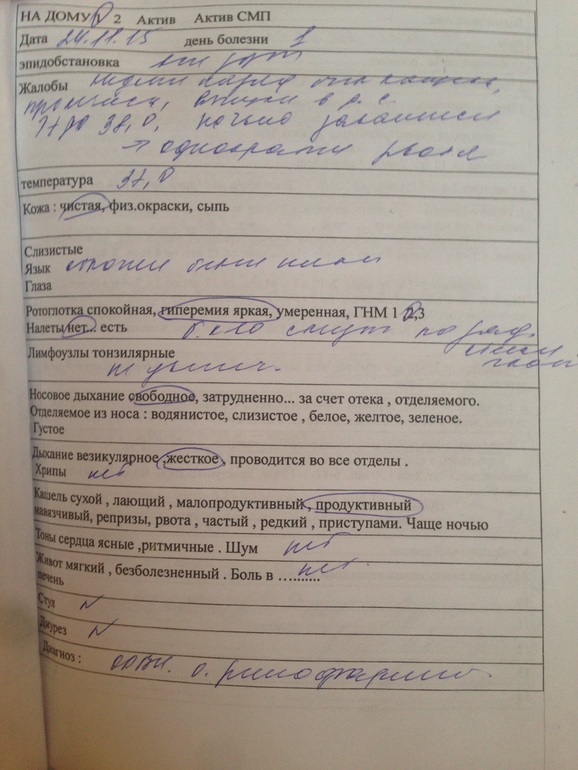 НА ДОМУ 1 2 Актив Актив СМП
Дата 24.11.15 день болезни 1
эпидобстановка
Жалобы
38,0, ночью
→ однократно рвота
температура 37,0
Кожа : чистая, физ.окраски, сыпь
Слизистые
Язык обложен белым налетом
Глаза
Ротоглотка спокойная, гиперемия яркая, умеренная, ГНМ 1 2,3
Налеты нет... есть по задн.
Лимфоузлы тонзилярные
не увелич.
Носовое дыхание свободное, затрудненно... за счет отека , отделяемого.
Отделяемое из носа : водянистое, слизистое , белое, желтое, зеленое.
Густое
Дыхание везикулярное ,жесткое , проводится во все отделы .
Хрипы нет
Кашель сухой , лающий , малопродуктивный , продуктивный
навязчивый, репризы, рвота , частый , редкий , приступами. Чаще ночью
Тоны сердца ясные ,ритмичные . Шум нет
Живот мягкий , безболезненный . Боль в ……... нет
печень
Стул N
Диурез N
Диагноз : ОРВИ. О. ринофарингит